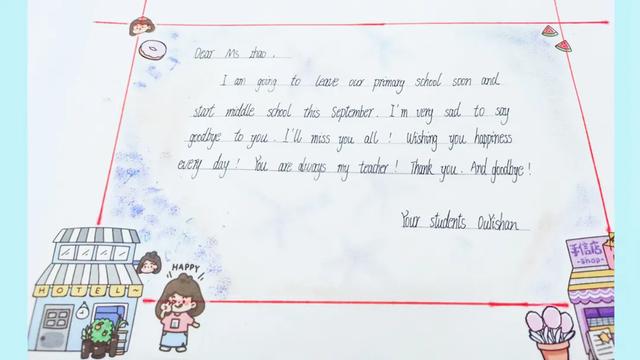 Dear Ms Zhao.
I am going to leave our primary school soon and
start middle school this September. I'm very sad to say
goodbye to you. I'll miss you all! Wishing you happiness
every day! You are always my teacher! Thank you. And goodbye!
Your students OuYishan
HAPPY
HOTEL~
手信店
-shop-